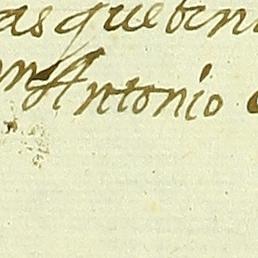 as que bini
on Antonio